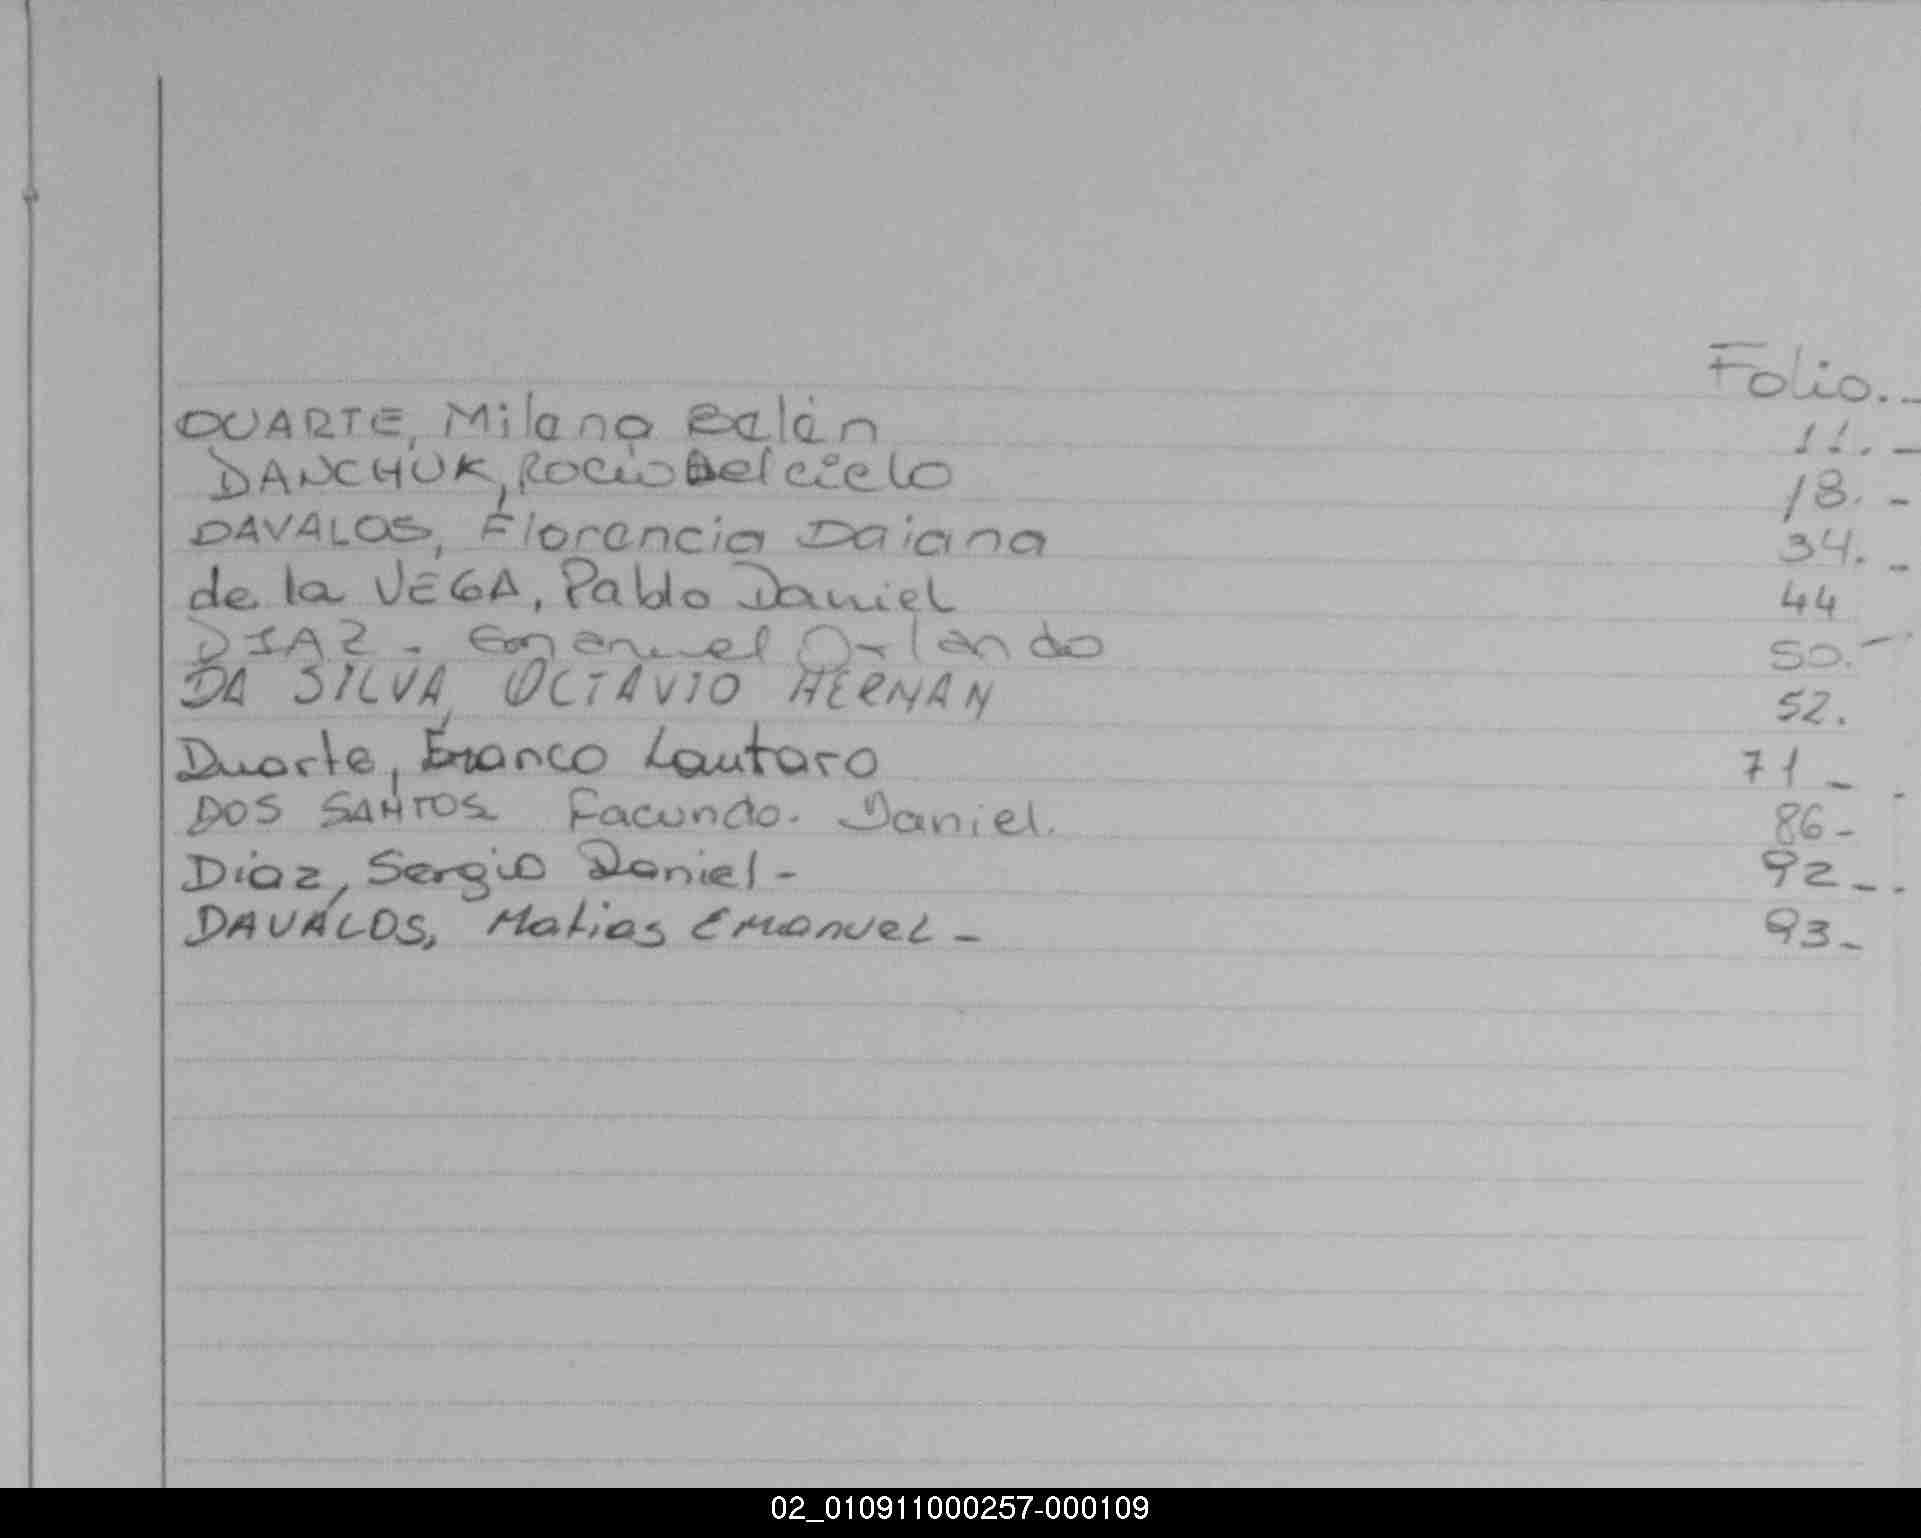 Folio.-
DUARTE, Milena Belén 11.-
DANCHUK, Rocio Del cielo 18.-
DAVALOS, Florencia Daiana 34.-
de la VEGA, Pablo Daniel 44
DIAZ. Emanuel Orlando 50.-
DA SILVA, OCTAVIO HERNAN 52.
Duarte, Franco Lautaro 71-
DOS SANTOS Facundo. Daniel. 86-
Diaz, Sergio Daniel- 92-.
DAVALOS, Matias Emanuel- 93-
02_010911000257-000109